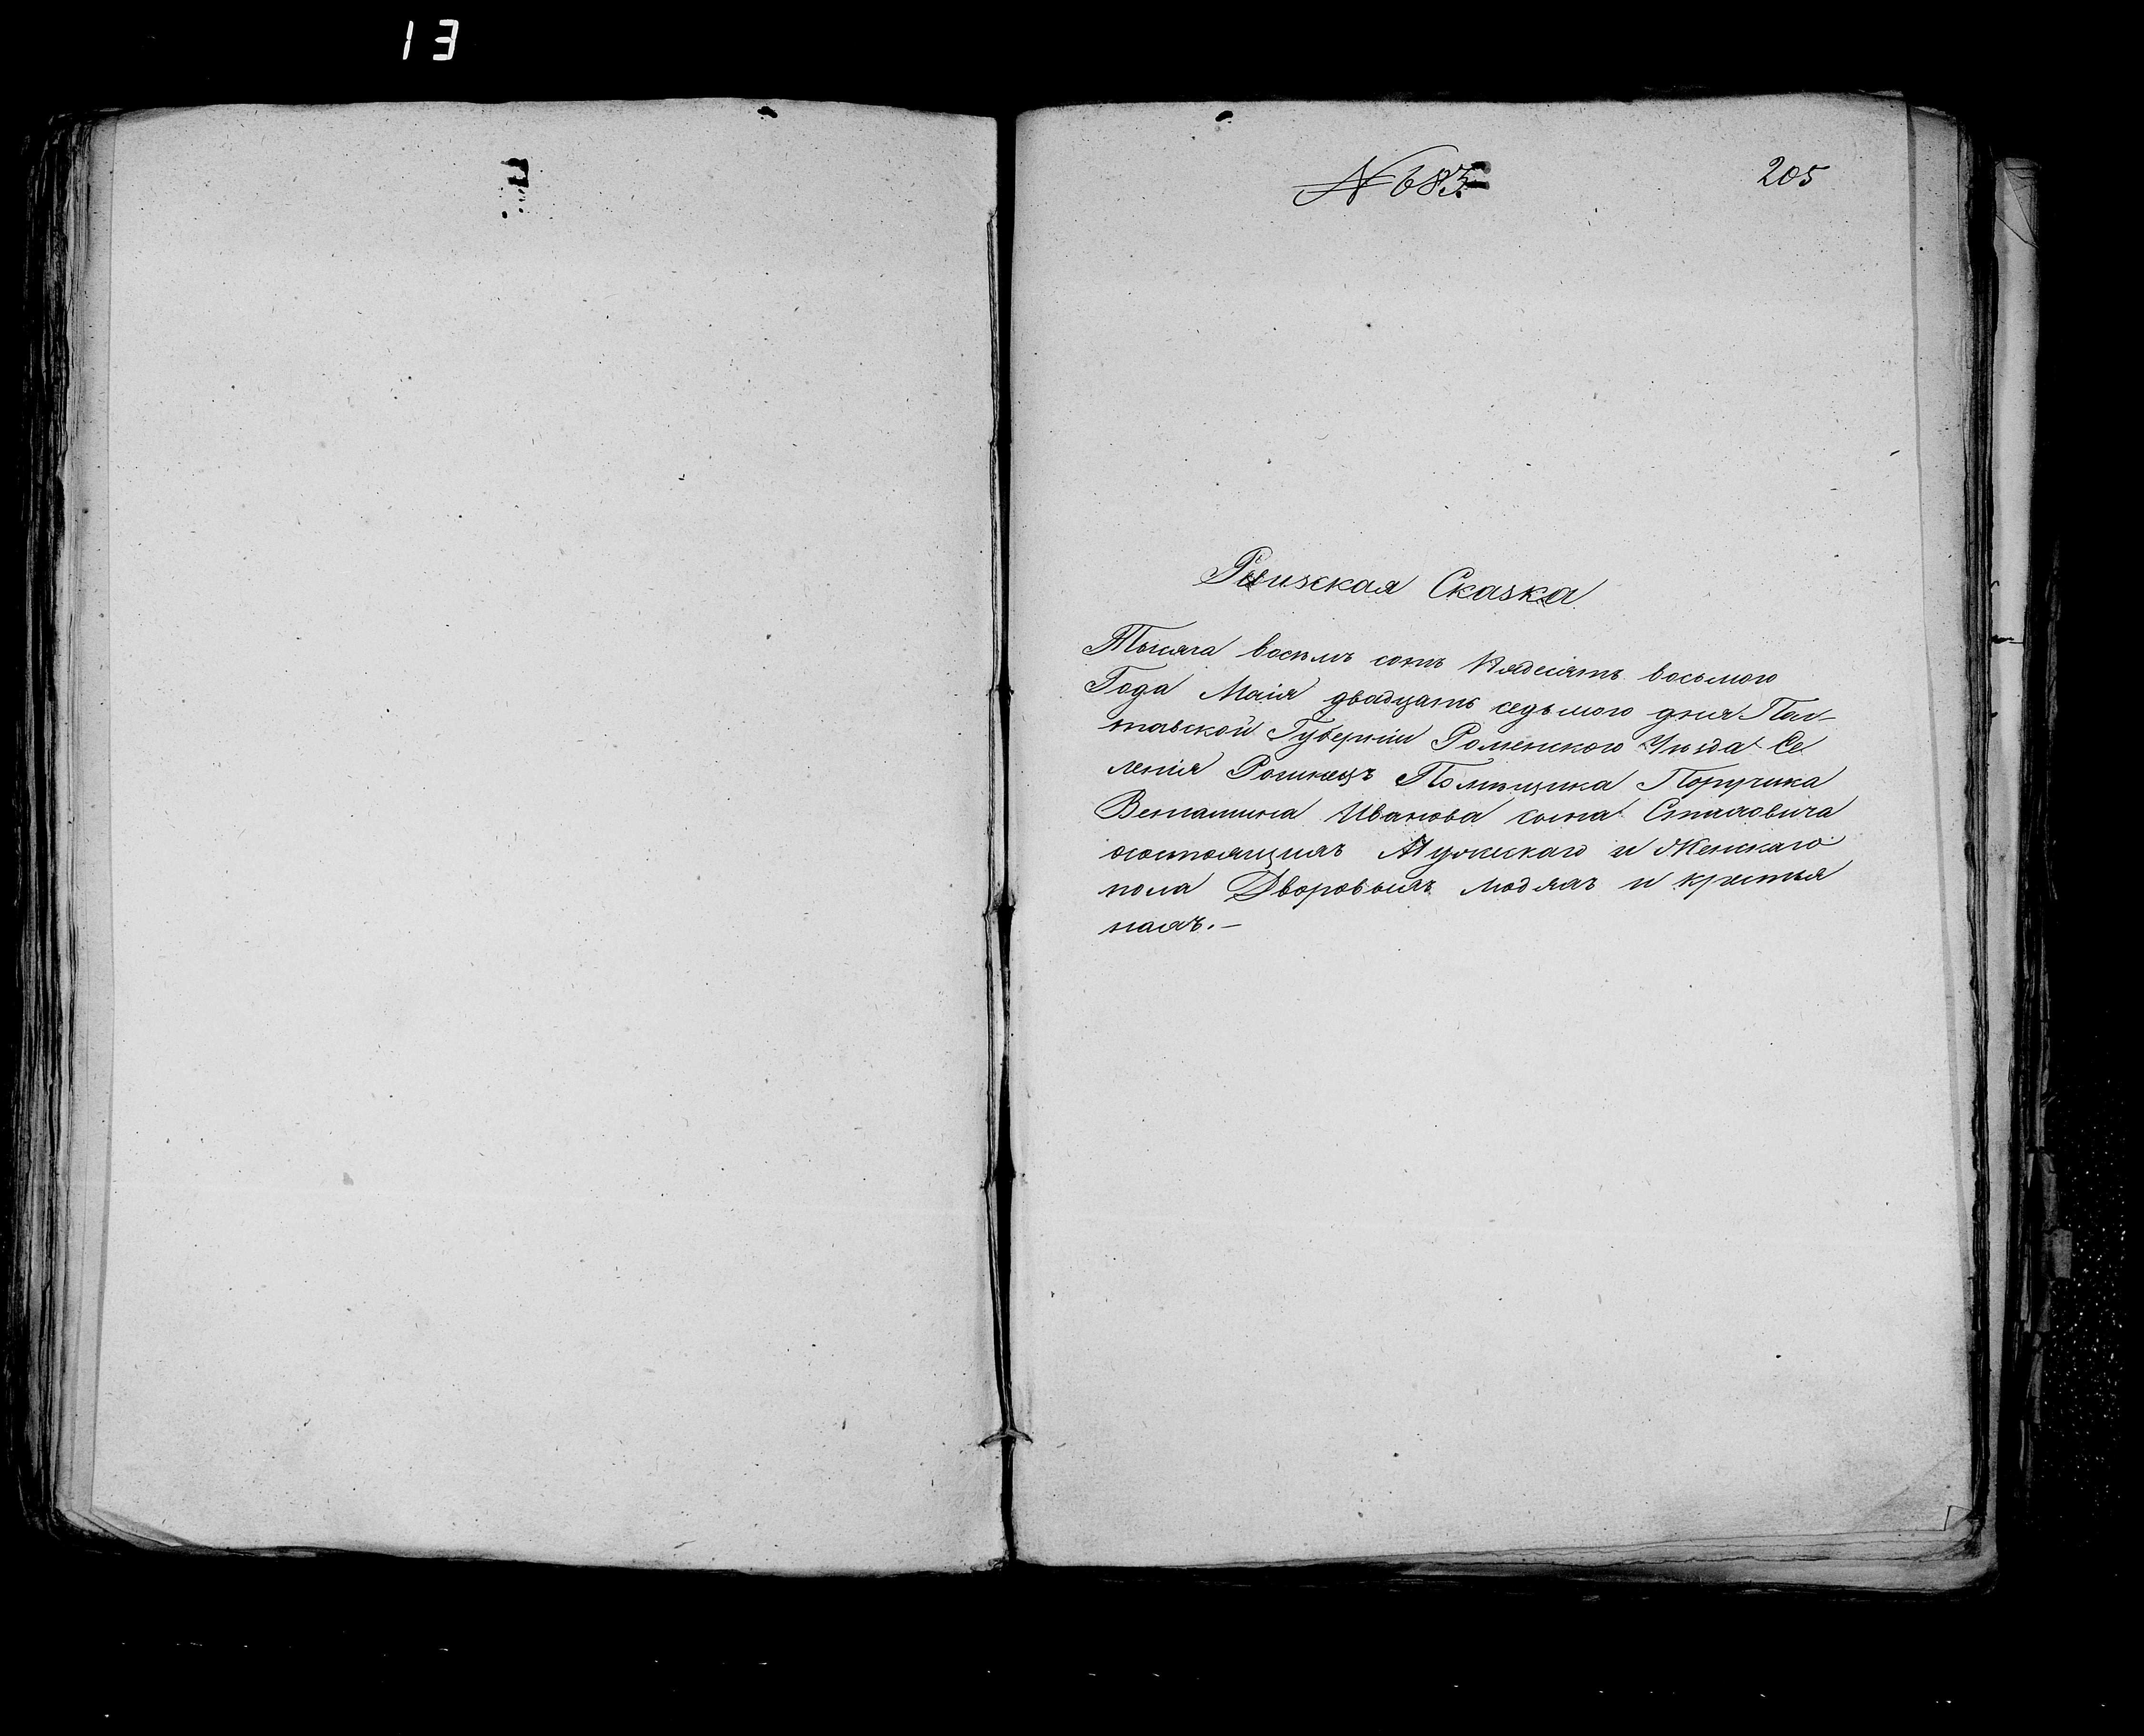 13
№ 683
205
Ревизская Сказка
Тысяча восемъ сотъ Пядесятъ восьмого
Года Маія двадцать седьмого дня Пол-
тавской Губерніи Роменского Уѣзда Се
ленія Помѣщика Поручика
Веніамина Иванова сына
осостоящихъ Мужескаго и Женскаго
пола Дворовыхъ людяхъ и крестья
нахъ.—